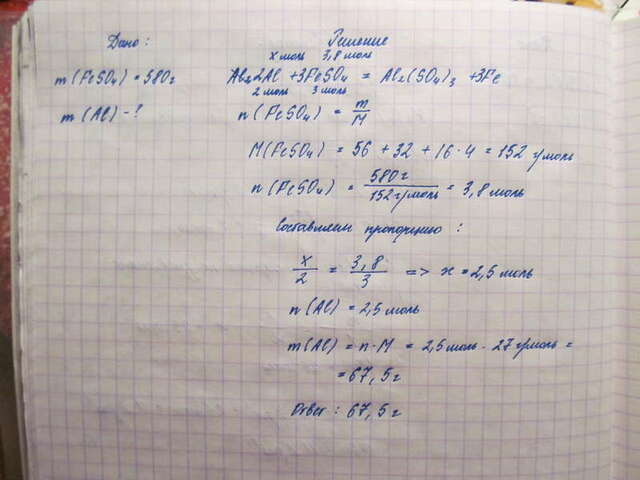 Дано: Решение
x моль 3,8 моль
m(FeSO₄) = 580г 2Al + 3FeSO₄ = Al₂(SO₄)₃ + 3Fe
2 моль 3 моль
m(Al) - ? n(FeSO₄) = m/M
M(FeSO₄) = 56 + 32 + 16·4 = 152 г/моль
n(FeSO₄) = 580г/152г/моль = 3,8 моль
Составляем пропорцию:
x/2 = 3,8/3 => x = 2,5 моль
n(Al) = 2,5 моль
m(Al) = n·M = 2,5 моль · 27 г/моль =
= 67,5 г
Ответ: 67,5 г